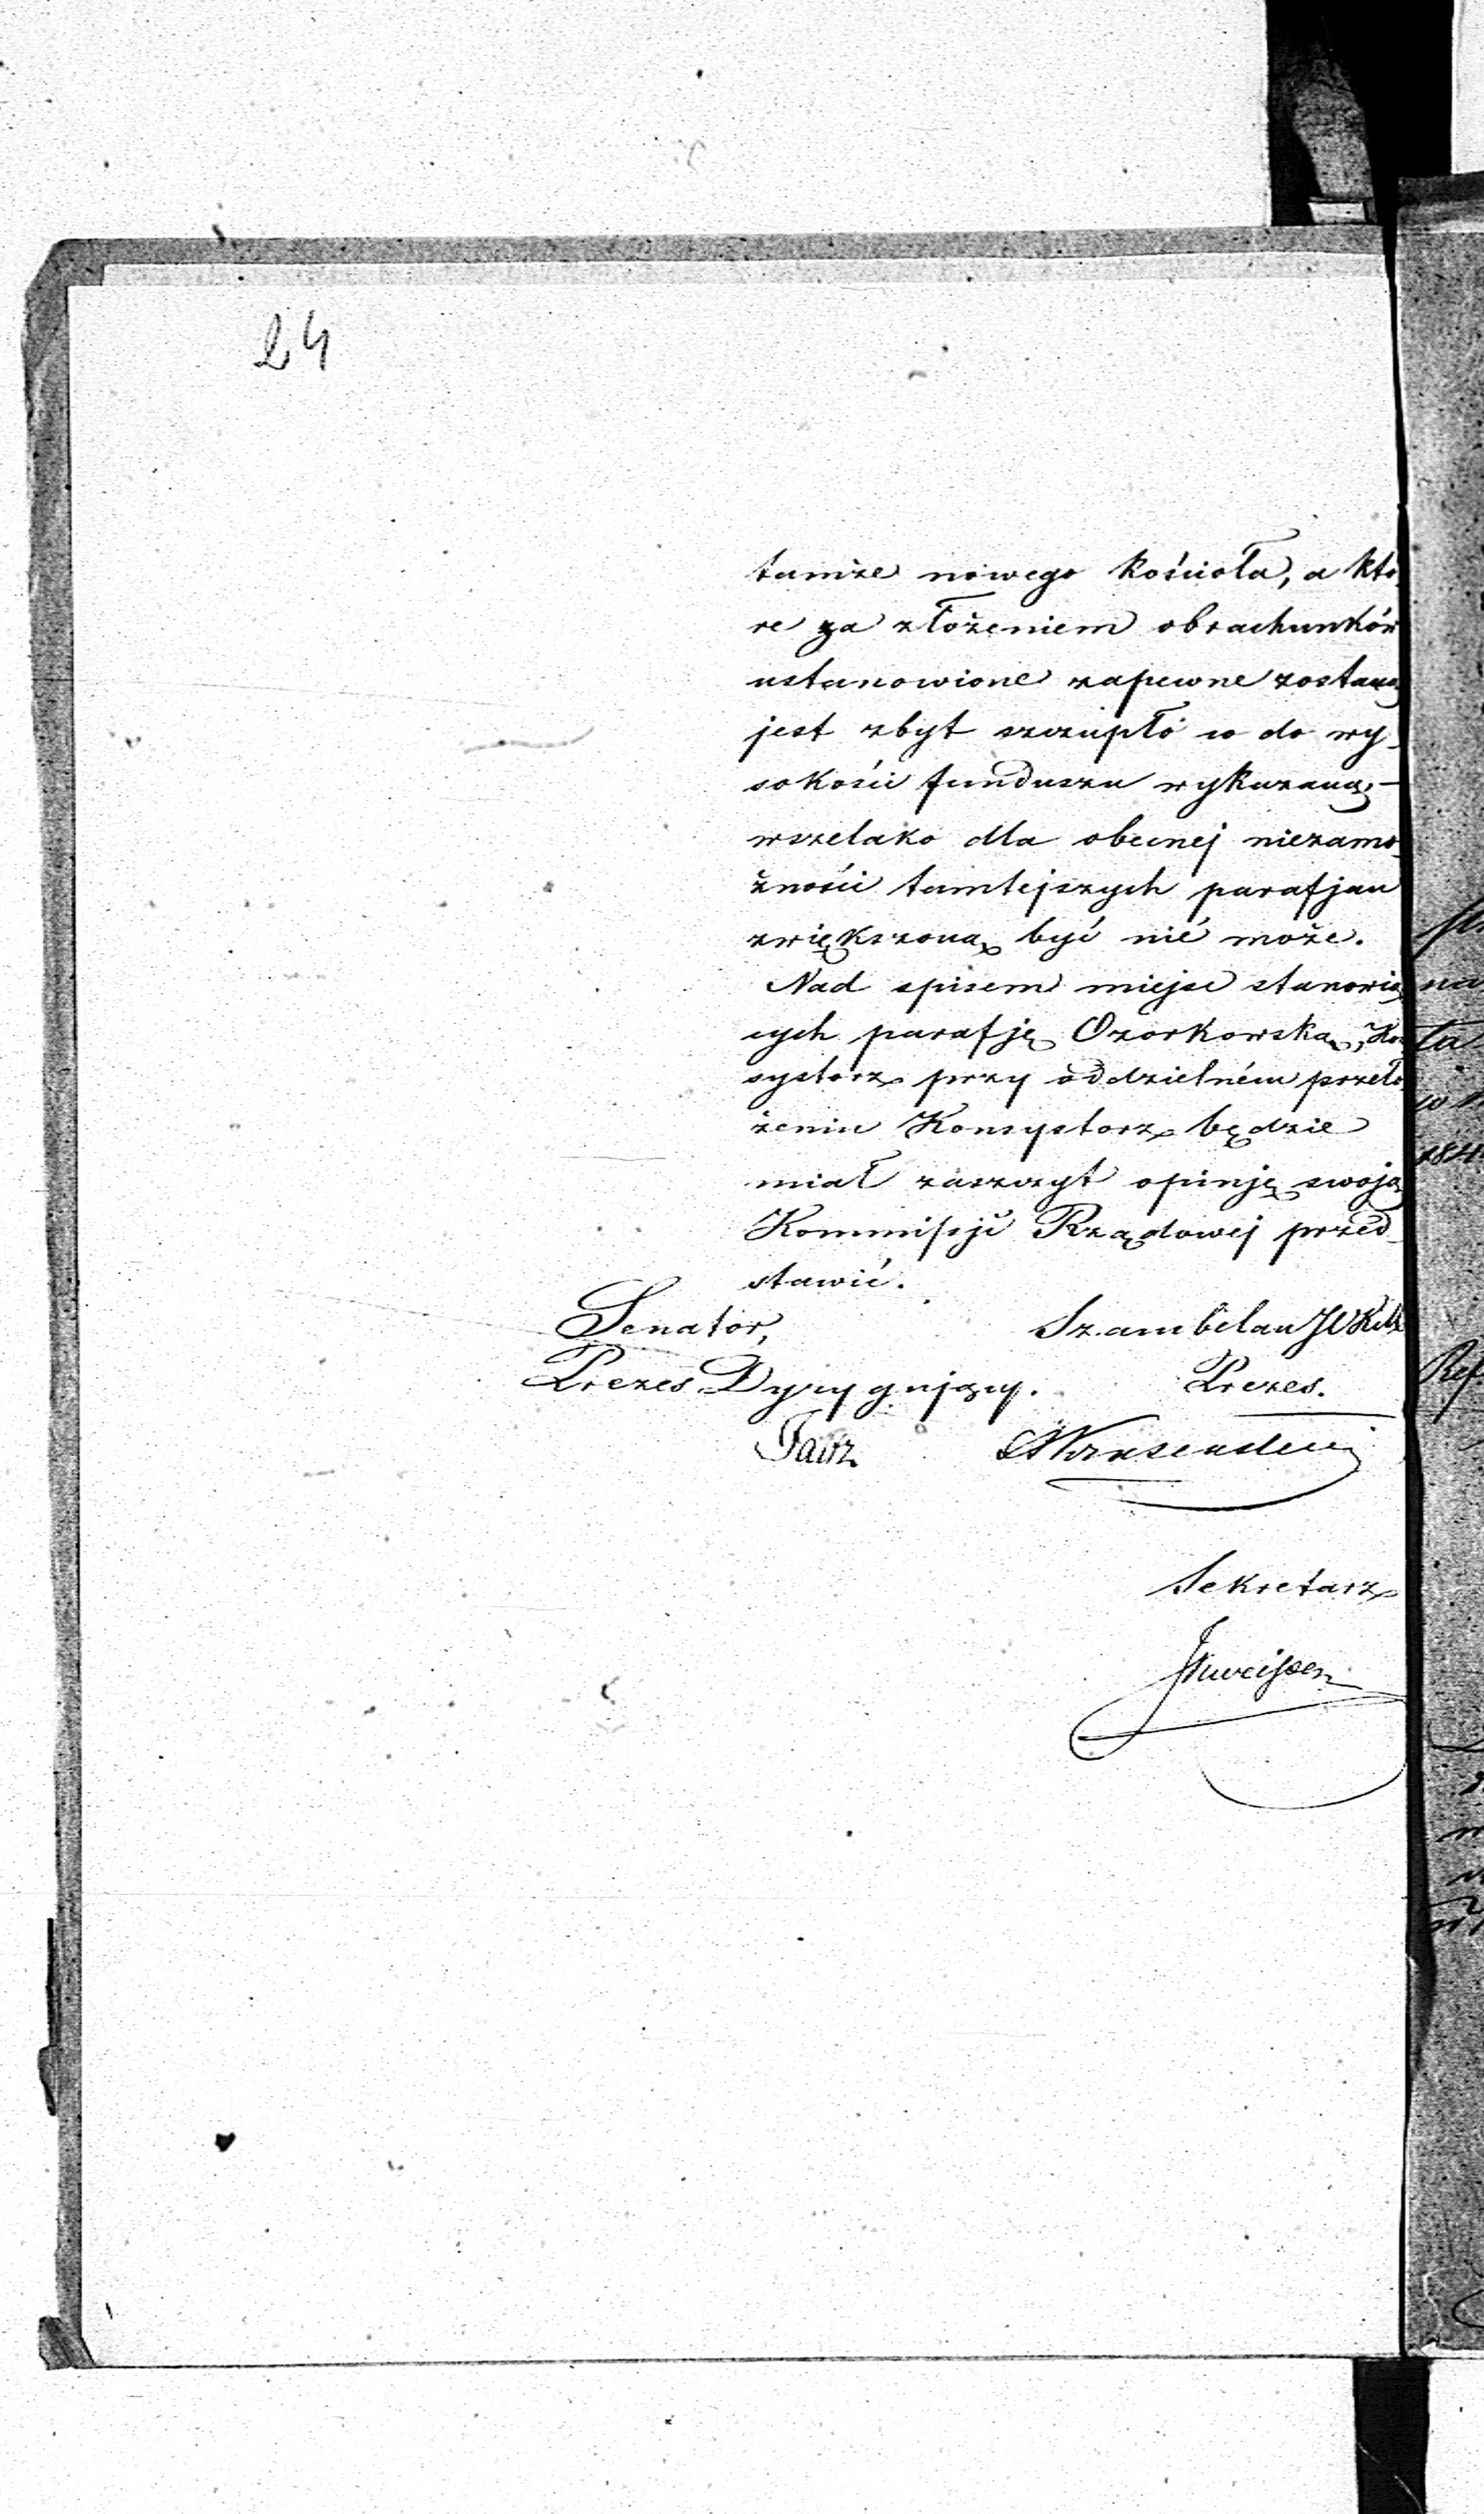 24
tamże nowego kościoła, a któ
re za złożeniem obrachunków
ustanowione zapewne zostaną
jest zbyt szczupłó co do wy-
sokości funduszu wykazaną,-
wszelako dla obecnej niezamo-
żności tamtejszych parafjan
zwiększoną być nié może.
Nad spisem miejsc stanowią
cych parafję Ozorkowską, Kon
systorz przy oddzielném przeło
żeniu Konsystorz będzie
miał zaszczyt opinję swoją
Kommissji Rządowej przed-
stawić.
Senator, Szambelan
Prezes Dyrygujący. Prezes.
Sekretarz